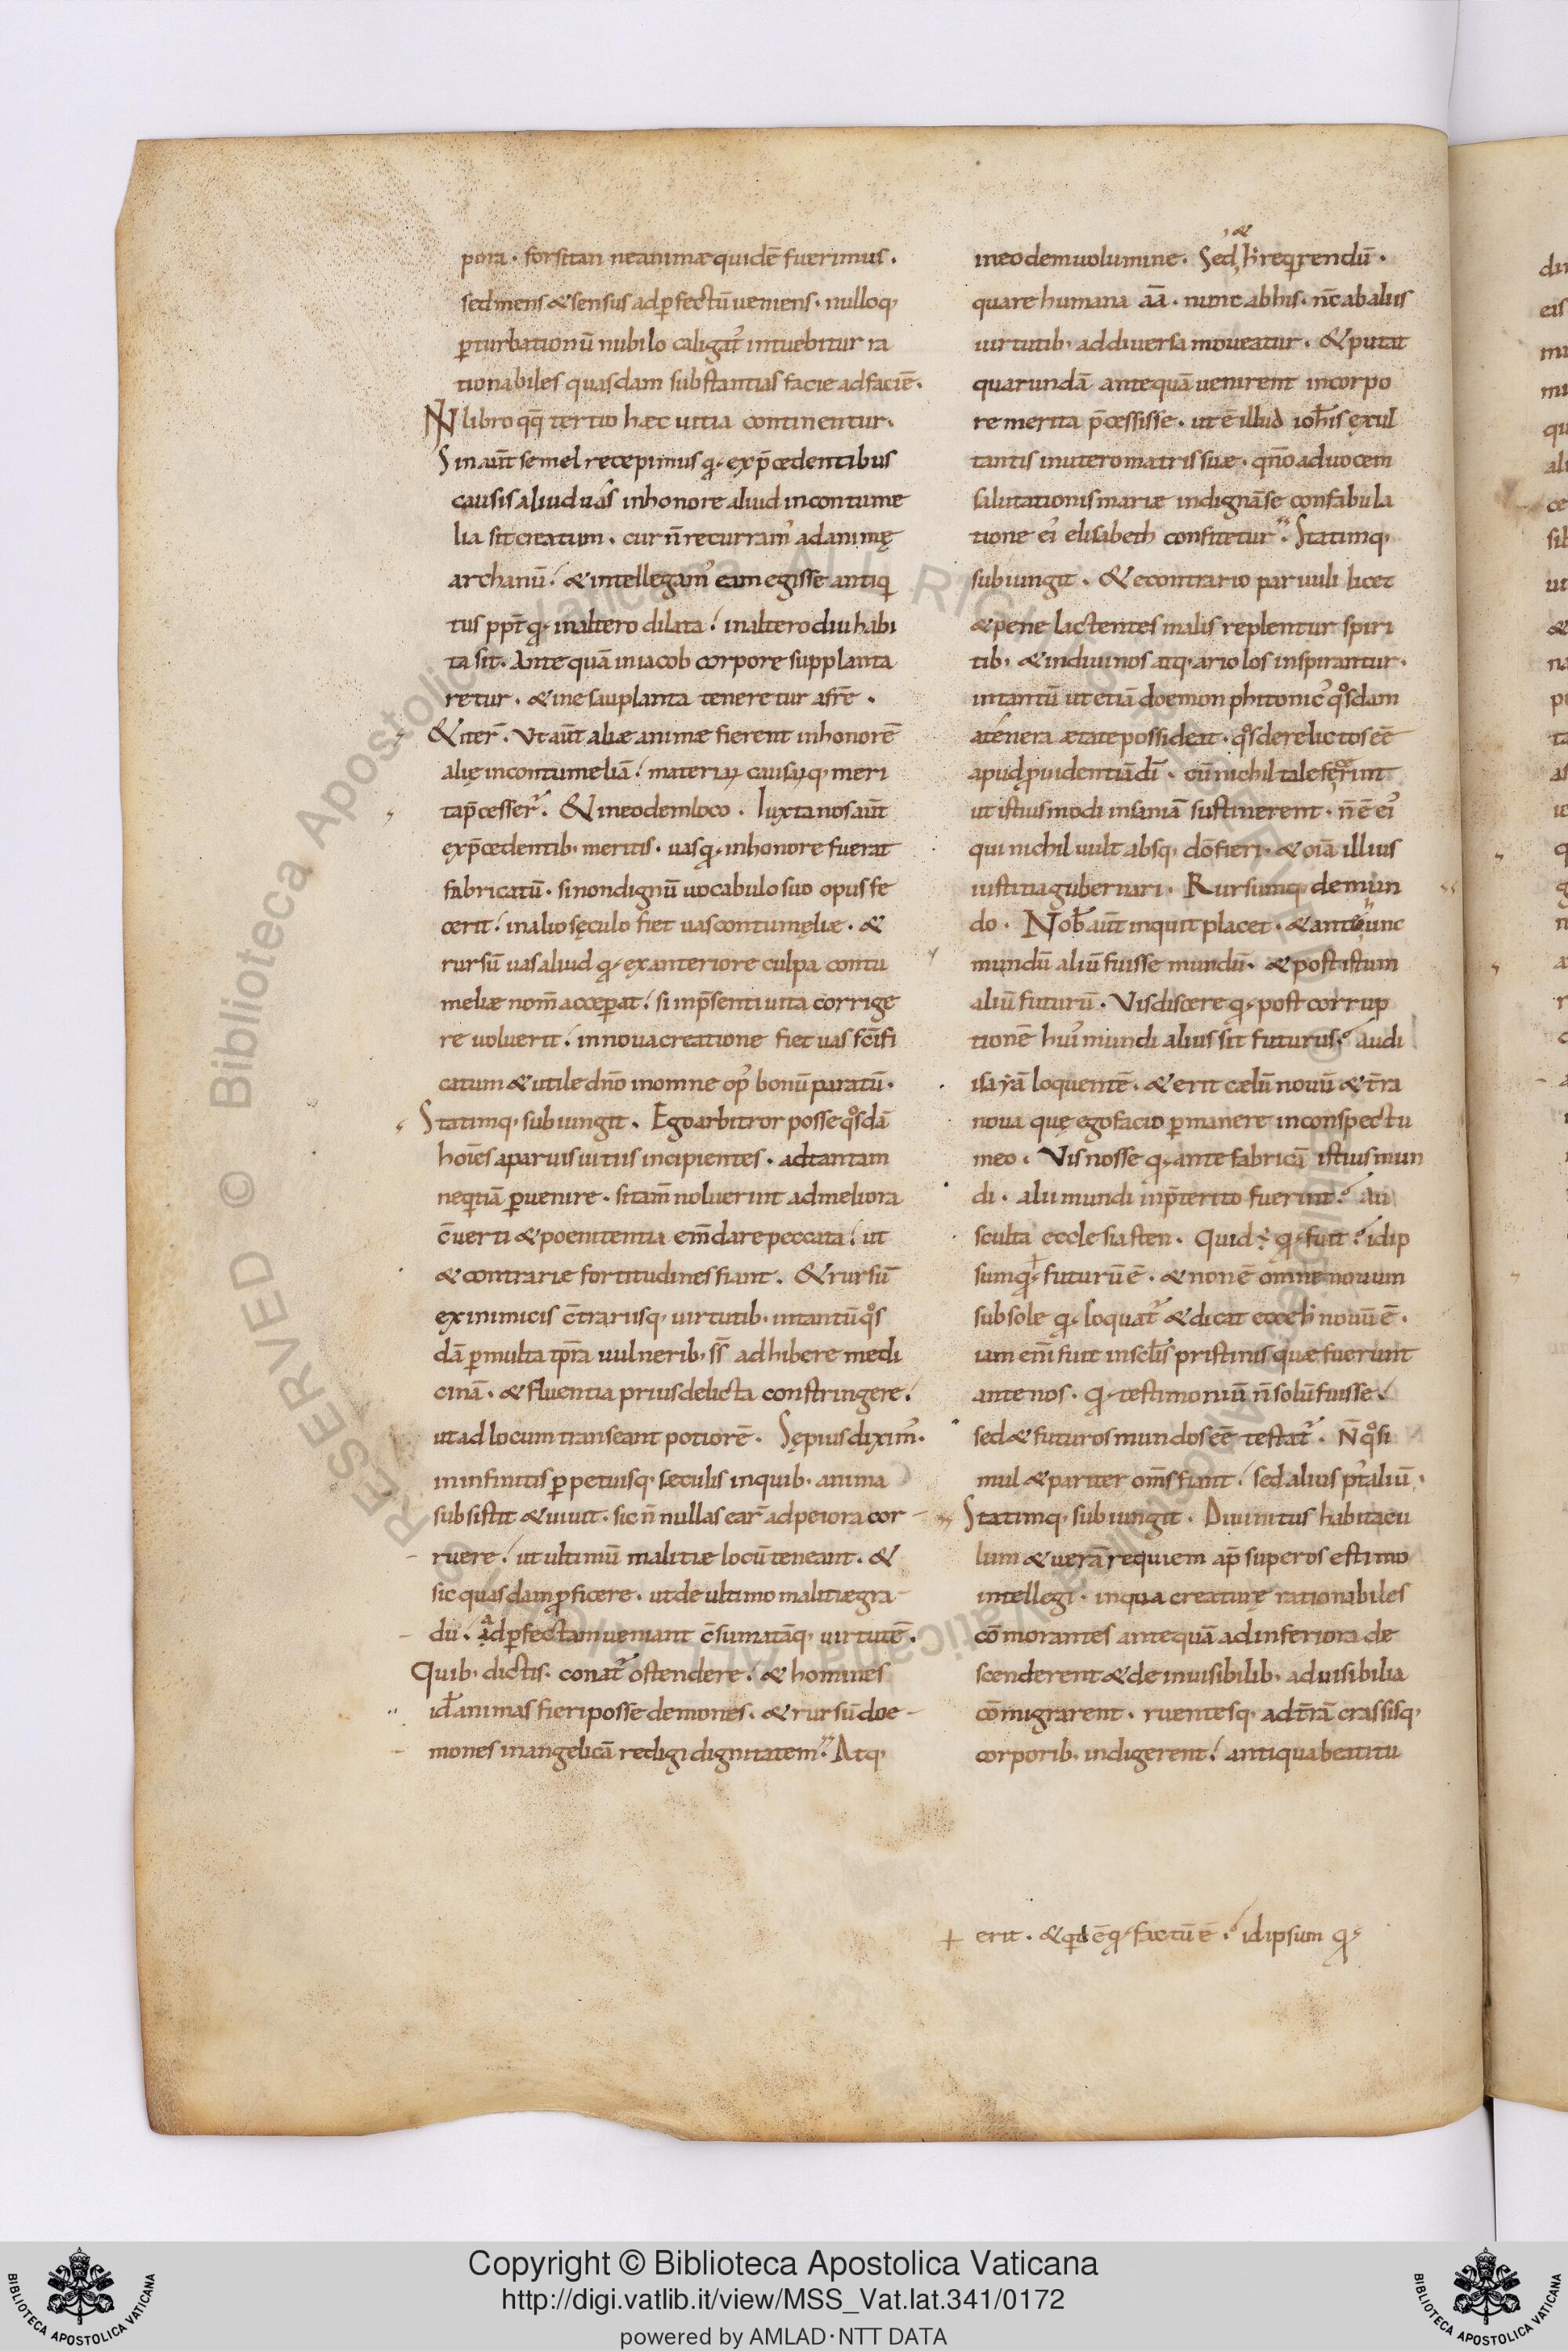 pora. forsitan neanimæquidē fuerimus.
sedmens &sensus adp̄fectū ueniens. nulloq;
p̄turbationū nubilo caligat᷒ intuebitur ra
tionabiles quasdam substantias facie adfaciē.
IN libro qq̄ tertio hæc uitia continentur.
Sinaūt semel recepimus qđ exp̄cedentibus
causis aliud uas inhonore aliud incontume
lia sit creatum. cur n̄ recurram᷒ adanimę
archanū? &intellegam᷒ eam egisse antiqi
tus ppt̄ qđ inaltero dilata? inaltero diu habi
ta sit. Ante quā iniacob corpore supplanta
retur. &inesauplanta teneretur afr̄e.
&iter̄. Vtaūt aliæ animæ fierent inhonorē
alię incontumeliā? materiaꝝ causaꝝq; meri
ta p̄cesser᷒. &ineodemloco. Iuxta nos aūt
exp̄cedentib; meritis. uas qđ inhonore fuerat
fabricatū. sinondignū uocabulo suo opus fe
cerit? inalio sęculo fiet uas contumęliæ. &
rursū uas aliud qđ ęxanteriore culpa contu
meliæ nom̄ acceperat? si inp̄senti uita corrige
re uoluerit? innouacreatione fiet uas sc̄ifi
catum &utile dn̄o inomne op᷒ bonū paratū.
Statimq; subiungit. Ego arbitror posse qosdā
hoīes aparuis uitiis incipientes. adtantam
neqitiā p̄uenire. sitam̄ noluerint admeliora
c̄uerti &poenitentia em̄dare peccata? ut
&contrarie fortitudines fiant. &rursū
ex inimicis c̄trariisq; uirtutib; intantū qos
dā p̄multa tp̄ra uulnerib; ss̄ adhibere medi
cinā. &fluentia prius delicta constringere?
ut ad locum transeant potiorē. Sępius dixim᷒.
ininfinitis p̄petuisq; sęculis inquib; anima
subsistit &uiuit. sic n̄nullas ear̄ adpeiora cor
ruere? ut ultimū malitiæ locū teneant. &
sic quasdam p̄ficere. ut de ultimo malitiægra
du. adp̄fectam ueniant c̄sumatāq; uirtutē.
Quib; dictis. conat᷒ ostendere? &homines
idł animas fieri posse demones. &rursū doe
mones inangelicā redigi dignitatem. Atq;
ineodemuolumine. Sed & h̄ reqirendū.
quare humana aīa. nunc abhis. nc̄ abaliis
uirtutib; addiuersa moueatur. &putat
quarundā antequā uenirent incorpo
re merita p̄cessisse. ut ē illud ioħis exul
tantis inutero matris suæ. qn̄o aduocem
salutationis mariæ indignā se confabula
tione ei᷒ elisabeth confitetur. Statimq;
subiungit. &econtrario paruuli licet
&pene lactentes malis replentur spiri
tib; &indiuinos atq; ariolos inspirantur.
intantū ut etiā doemon phitonic᷒ qosdam
atenera ætate possideat. qos derelictos eē
apud p̄uidentiā dī. cū nichil tale fecerint
ut istiusmodi insaniā sustinerent. n̄ ē ei᷒
qui nichil uult absq; dō fieri. &oīa illius
iustitia gubernari. Rursumq; demun
do. Nob̄ aūt inquit placet. &ante hunc
mundū aliū fuisse mundū. &post istum
aliū futurū. Vis discere qđ post corrup
tionē hui᷒ mundi alius sit futurus? audi
isayā loquentē. &erit cælū nouū &t̄ra
noua quę ego facio p̄manere inconspectu
meo. Vis nosse qđ ante fabricā istius mun
di. alii mundi inp̄terito fuerint? au
sculta ecclesiasten. Quid ē qđ fuit? idip
sum qđ futurū ē. &non ē omne nouum
subsole qđ loquat᷒ &dicat ecceh̄ nouū ē.
iam enī fuit insclīs pristinis quæ fuerunt
ante nos. qđ testimoniū n̄ solū fuisse?
sed &futuros mundos eē testat᷒. N̄ qo si
mul &pariter om̄s fiant? sed alius p̄t aliū.
Statimq; subiungit. Diuinitus habitacu
lum &uerā requiem ap̄ superos estimo
intellegi. inqua creaturę rationabiles
cōmorantes antequā adinferiora de
scenderent &de inuisibilib; aduisibilia
cōmigrarent. ruentesq; adt̄rā crassisq;
corporib; indigerent? antiqua beatitu
+ erit. &qid ē qđ factū ē? idipsum qđ
Copyright © Biblioteca Apostolica Vaticana
http://digi.vatlib.it/view/MSS_Vat.lat.341/0172
powered by AMLAD·NTT DATA
BIBLIOTECA APOSTOLICA VATICANA
BIBLIOTECA APOSTOLICA VATICANA